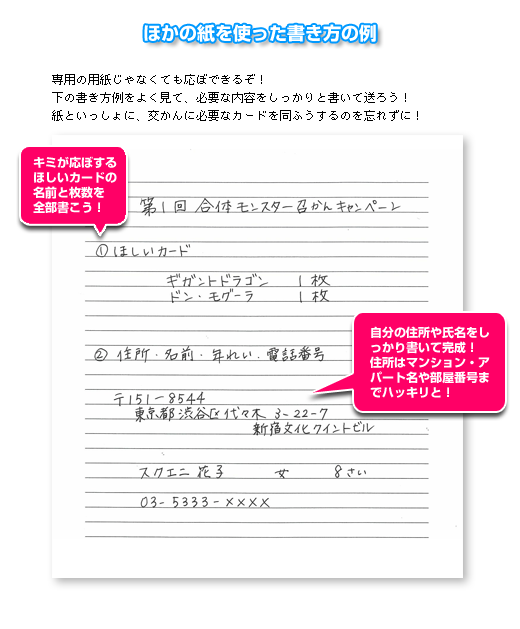 ほかの紙を使った書き方の例
専用の用紙じゃなくても応ぼできるぞ！
下の書き方例をよく見て、必要な内容をしっかりと書いて送ろう！
紙といっしょに、交かんに必要なカードを同ふうするのを忘れずに！
キミが応ぼする
ほしいカードの
名前と枚数を
全部書こう！
第1回 合体モンスター召かんキャンペーン
①ほしいカード
ギガントドラゴン 1枚
ドン・モグーラ 1枚
自分の住所や氏名をし
っかり書いて完成！
住所はマンション・ア
パート名や部屋番号ま
でハッキリと！
② 住所・名前・年れい・電話番号
〒151-8544
東京都渋谷区代々木 3-22-7
新宿文化クイントビル
スクエニ 花子 女 8さい
03-5333-××××